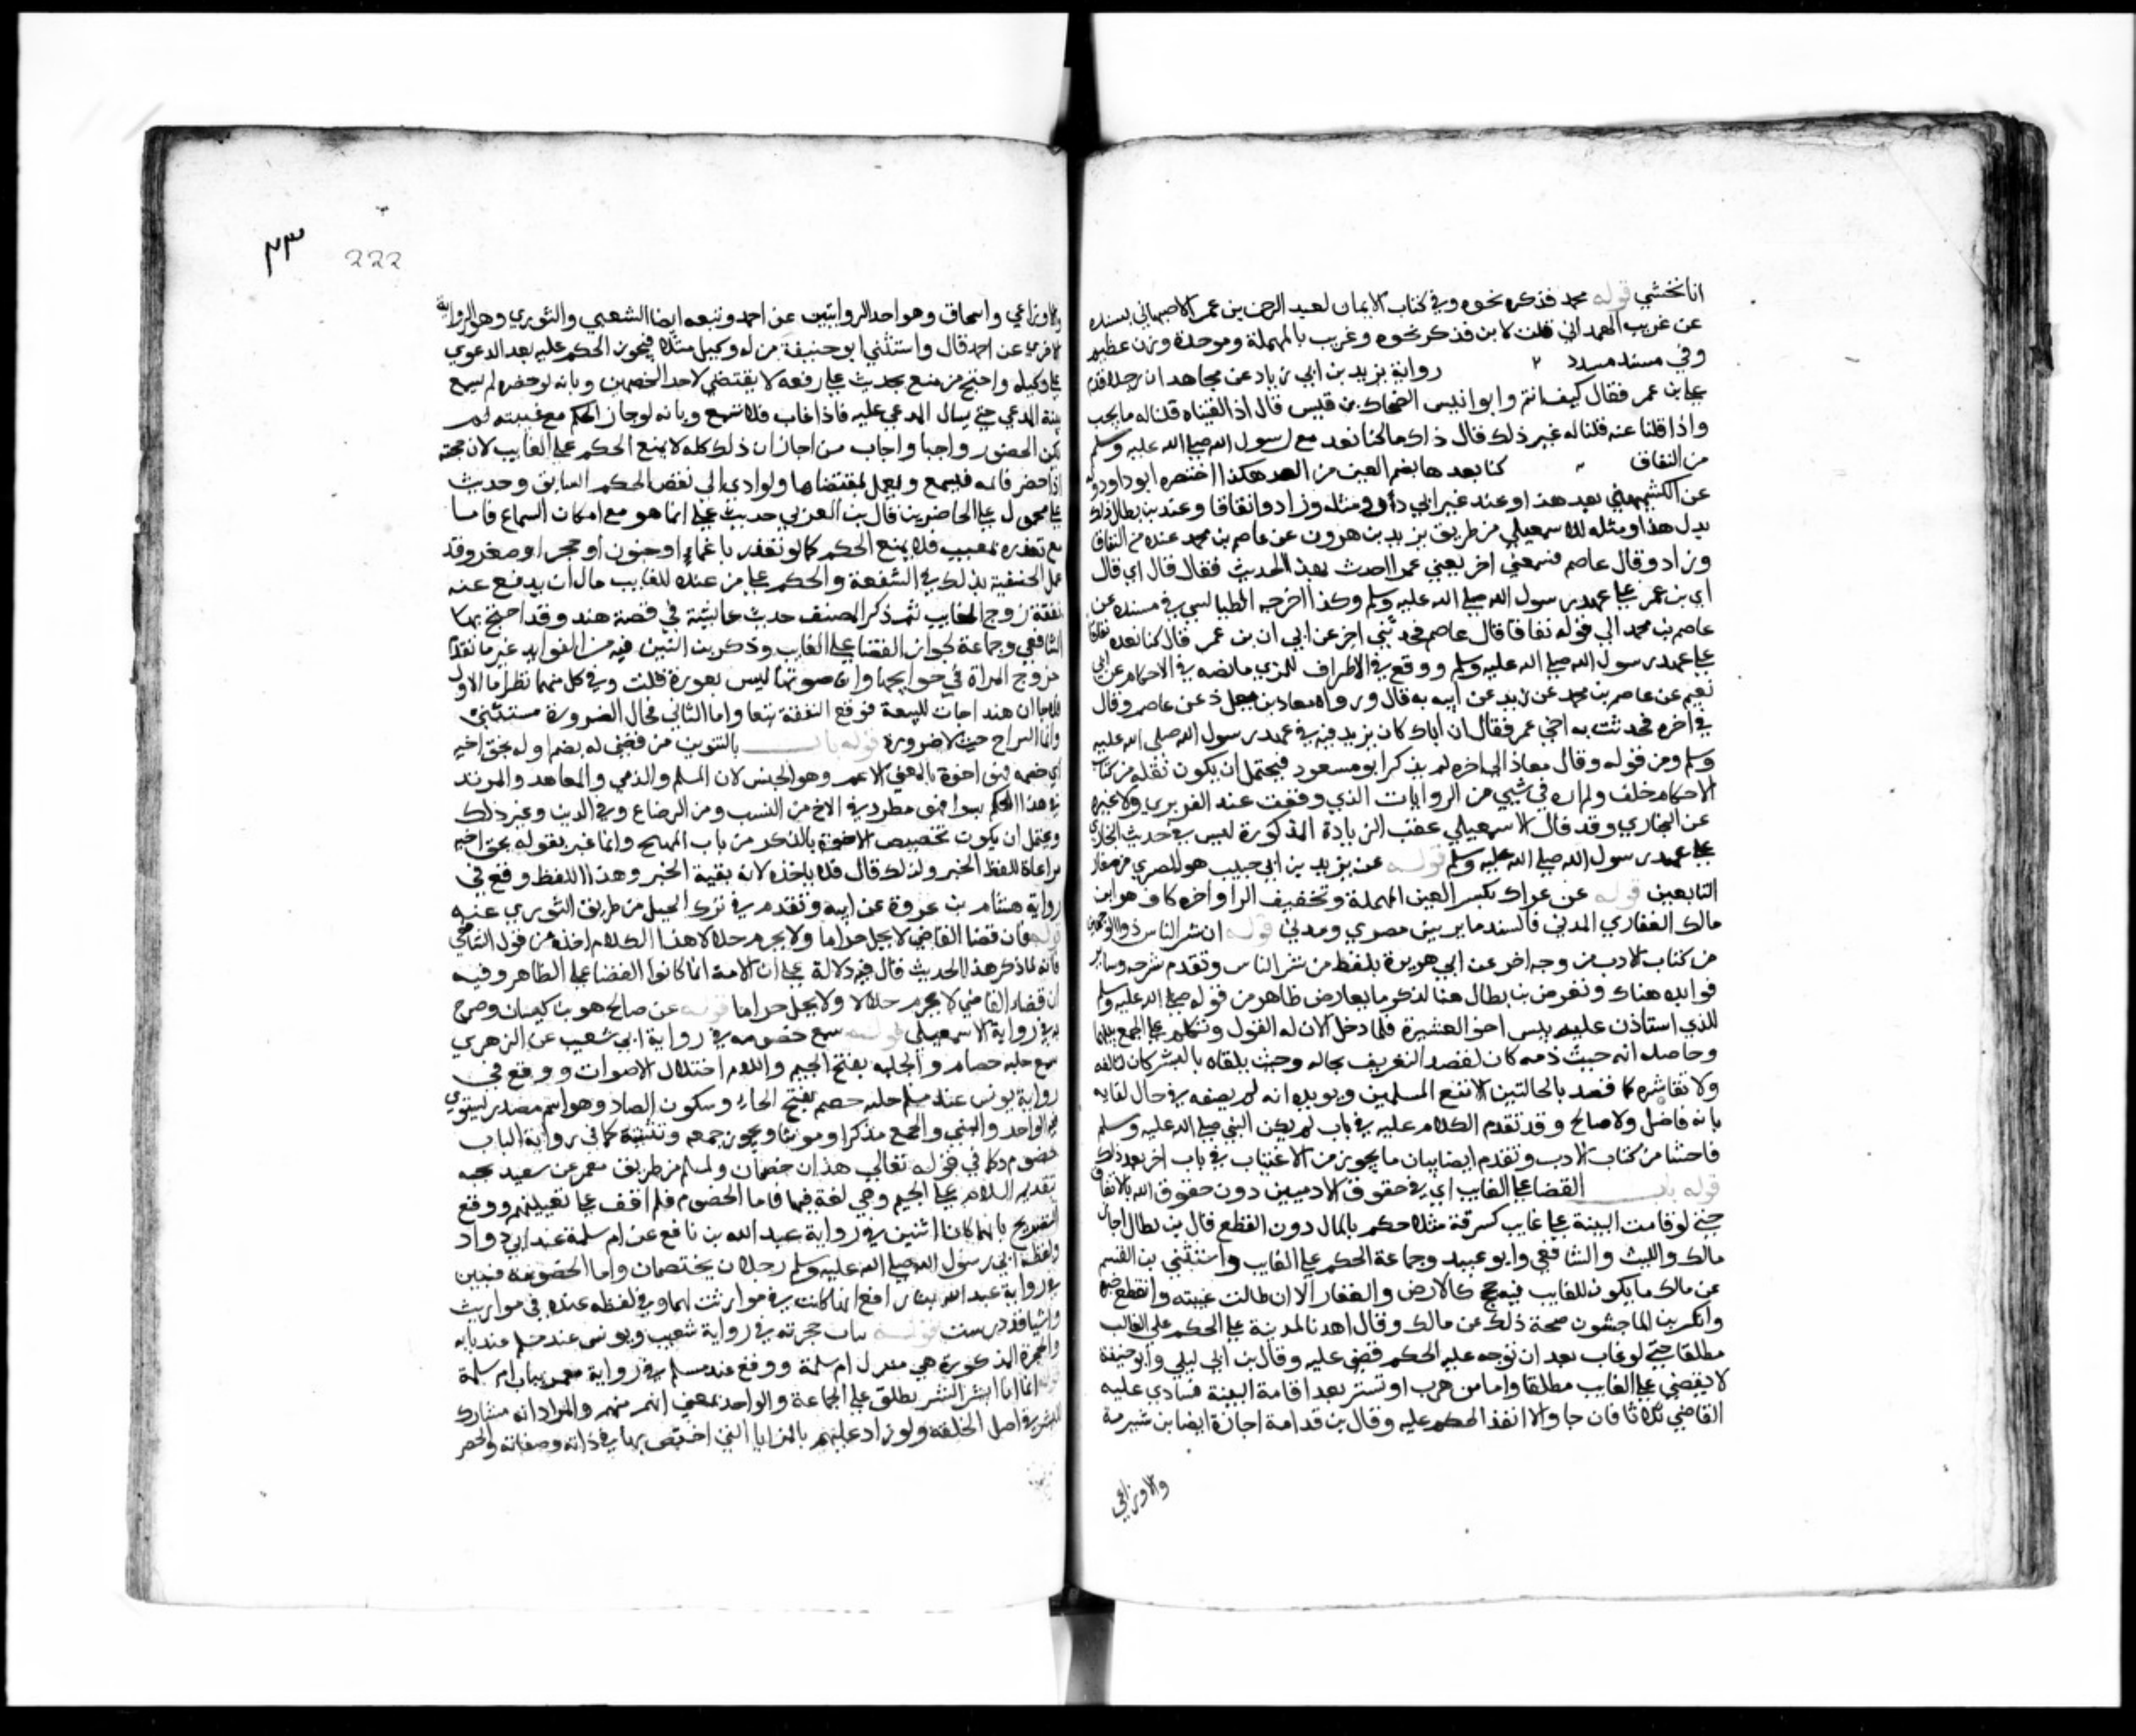 انا نخشي قوله محمد فذكره نحوه وفي كتاب الايمان لعبد الرحمن بن عمر الاصبهاني بسنده
عن عريب الهمداني قلت لابن فذكر نحوه وعريب بالمهملة وموحدة وزن عظيم
وفي مسند مسدد ٢ رواية يزيد بن ابي زياد عن مجاهد ان رجلا قدم
علي ابن عمر فقال كيف انتم وابو انيس الضحاك بن قيس قال اذا لقيناه قلنا له ما يحب
واذا قلنا عنه قلنا له غير ذلك قال ذاك ما كنا نعد مع رسول الله صلي الله عليه وسلم
من النفاق كنا بعدها بضم العين من العد هكذا اختصره ابو داود وله
عن الكشميهني بعد هذا وعند غير ابي داود مثله وزاد وانفاقا وعند بن بطال ذلك
بدل هذا ومثله للاسمعيلي من طريق يزيد بن هرون عن عاصم بن محمد عنده من النفاق
وزاد وقال عاصم فسمعني اخر يعني عمر احدث بهذا الحديث فقال قال ابي قال
ابي بن عمر علي عهد رسول الله صلي الله عليه وسلم وكذا اخرجه الطيالسي في مسنده عن
عاصم بن محمد الي قوله نفاقا قال عاصم فحدثني اخي عن ابي ان بن عمر قال كنا نعده نفاقا
علي عهد رسول الله صلي الله عليه وسلم ووقع في الاطراف للمزي مانصه في الاحكام عن ابي
نعيم عن عاصم بن محمد عن زيد عن ابيه به قال ورواه معاد بن معاذ عن عاصم وقال
في اخره فحدثت به اخي عمر فقال ان اباك كان يزيد فيه في عهد رسول الله صلي الله عليه
وسلم ومن قوله وقال معاذ الي اخره لم يذكر ابو مسعود فيحتمل ان يكون نقله من كتاب
الاحكام خلف ولم اره في شيي من الروايات الذي وقفت عند الفربري ولا غيره
عن البخاري وقد قال الاسمعيلي عقب الزيادة المذكورة ليس في حديث البخاري
علي عهد رسول الله صلي الله عليه وسلم قوله عن يزيد بن ابي حبيب هو المصري من صغار
التابعين قوله عن عراك بكسر العين المهملة وتخفيف الرا واخره كاف هو ابن
مالك الغفاري المدني فالسند ما بين مصري ومدني قوله ان شر الناس ذو الوجهين
من كتاب الادب من وجه اخر عن ابي هريرة بلفظ من شر الناس وتقدم شرحه وساير
فوايده هناك وتعرض بن بطال هنا لذكر ما يعارض ظاهره من قوله صلي الله عليه وسلم
للذي استاذن عليه بيس اخو العشيرة فلما دخل الان له القول وتكلم علي الجمع بينهما
وحاصله انه حيث ذمه كان لقصد التعريف بحاله وحيث تلقاه بالبشر كان لتالفه
ولاتقاشره كما قصد بالحالتين الا نفع المسلمين ويويده انه لم يصفه في حال لقايه
بانه فاضل ولا صالح وقد تقدم الكلام عليه في باب لم يكن النبي صلي الله عليه وسلم
فاحشا من كتاب الادب وتقدم ايضا بيان ما يجوز من الاغتياب في باب اخر بعد ذلك
قوله باب القضا علي الغايب اي في حقوق الادميين دون حقوق الله بالاتفاق
حتي لو قامت البينة علي غايب كسرقة مثلا حكم بالمال دون القطع قال بن بطال اجاز
مالك والليث والشافعي وابو عبيد وجماعة الحكم علي الغايب واستثني بن القسم
عن مالك ما يكون للغايب فيه حجج كالارض والعقار الا ان طالت غيبته وانقطع خبره
وانكر بن الماجشون صحة ذلك عن مالك وقال اهل المدينة علي الحكم علي الغايب
مطلقا حتي لو غاب بعد ان توجه عليه الحكم قضي عليه وقال بن ابي ليلي وابو حنيفة
لا يقضي علي الغايب مطلقا واما من هرب او تستر بعد اقامة البينة فينادي عليه
القاضي ثلاثا فان جا والا انفذ الحكم عليه وقال بن قدامة اجازه ايضا بن شبرمة
والاوزاعي
٢٣ 222
والاوزاعي واسحاق وهو احد الروايتين عن احمد وتبعه ايضا الشعبي والثوري وهو الرواية
الاخري عن احمد قال واستثني ابو حنيفة من له وكيل مثلا فيجوز الحكم عليه بعد الدعوي
علي وكيله واحتج من منع بحديث علي رفعه لا يقتضي لاحد الخصمين وبانه لو حضر لم يسمع
بينة المدعي حتي يسال المدعي عليه فاذا غاب فلا تسمع وبانه لو جاز الحكم مع غيبته لم
يكن الحضور واجبا واجاب من اجاز ان ذلك كله لا يمنع الحكم علي الغايب لان حجته
اذا حضر قايمه فيسمع ويعمل بمقتضاها ولو ادي الي نقض الحكم السابق وحديث
علي محمول علي الحاضرين قال بن العربي حديث علي انما هو مع امكان السماع فاما
مع تعذره بمغيب فلا يمنع الحكم كما لو تعذر باغماء او جنون او حجر او صغر وقد
عمل الحنفية بذلك في الشفعة والحكم علي من عنده للغايب مال ان يدفع عنه
نفقة زوج الغايب ثم ذكر المصنف حديث عايشة في قصة هند وقد احتج بها
الشافعي وجماعة لجواز القضا علي الغايب وذكر بن التين فيه من الفوايد غير ما تقدم
خروج المراة في حوايجها وان صوتها ليس بعورة قلت وفي كل منهما نظر اما الاول
فلما ان هند اجات للبيعة فوقع النفقة تبعا واما الثاني فحال الضرورة مستثني
وانما النزاح حيث لا ضرورة قوله باب بالتنوين من قضي له بضم اوله بحق اخيه
اي خصمه فهي اخوة بالمعني الاعم وهو الجنس لان المسلم والذمي والمعاهد والمرتد
في هذا الحكم سوا فهي مطرد في الاخ من النسب ومن الرضاع وفي الدين وغير ذلك
ويحتمل ان يكون تخصيص الاخوة بالذكر من باب المهيج وانما عبر بقوله بحق اخيه
مراعاة للفظ الخبر ولذلك قال فلا ياخذه لانه بقية الخبر وهذا اللفظ وقع في
رواية هشام بن عروة عن ابيه وتقدم في ترك الحيل من طريق الثوري عنه
قوله فان قضا القاضي لا يحل حراما ولا يحرم حلالا هذا الكلام اخذه من قول الشافعي
فانه لما ذكر هذا الحديث قال فيه دلالة علي ان الامة انما كانوا القضا علي الظاهر وفيه
ان قضاء القاضي لا يحرم حلالا ولا يحل حراما قوله عن صالح هو بن كيسان وصرح
به في رواية الاسمعيلي قوله سمع خصومه في رواية ابي شعيب عن الزهري
سمع جلبه خصام والجلبه بفتح الجيم واللام اختلال الاصوات ووقع في
رواية يونس عند مسلم جلبه خصم بفتح الخاء وسكون الصاد وهو اسم مصدر يستوي
فيه الواحد والمثني والجمع مذكرا ومونثا ويجوز جمعه وتثنيته كما في رواية الباب
خصوم وكما في قوله تعالي هذان خصمان ولمسلم من طريق معمر عن سعيد لجبه
بتقديم اللام علي الجيم وهي لغة فيها فاما الخصوم فلم اقف علي تعيينهم ووقع
التصريح بانهما كانا اثنين في رواية عبد الله بن نافع عن ام سلمة عند ابي داود
ولفظه اتي رسول الله صلي الله عليه وسلم رجلان يختصمان واما الخصومة فبين
في رواية عبد الله بن رافع انما كانت في مواريث لهما وفي لفظه عنده في مواريث
واشيا قد درست قوله بباب حجرته في رواية شعيب ويونس عند مسلم عند بابه
والحجرة المذكورة هي منزل ام سلمة ووقع عند مسلم في رواية معمر بباب ام سلمة
قوله انما انا بشر البشر يطلق علي الجماعة والواحد بمعني انه منهم والمراد انه مشارك
للبشر في اصل الخلقه ولو زاد عليهم بالمزايا التي اختص بها في ذاته وصفاته والحصر